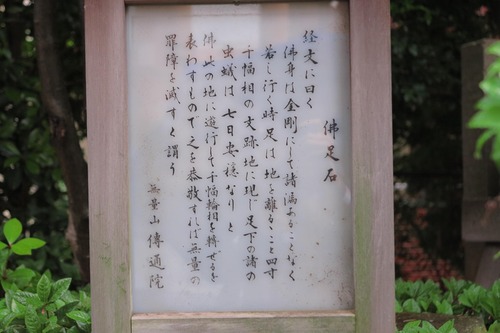 佛足石
経文に曰く
佛身は金剛にして諸漏あることなく
若し行く時足は地を離るゝこと四寸
千幅相の文跡地に現じ足下の諸の
虫蟻は七日安穏なり と
佛此の地に遊行して千幅輪相を轉ぜると
表わすもので之を恭敬すれば無量の
罪障を滅すと謂う
無量山傳通院